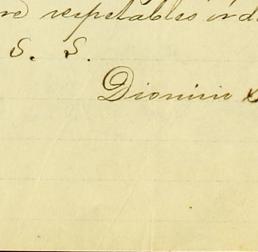 respetables ord
S. S.
Dionisio